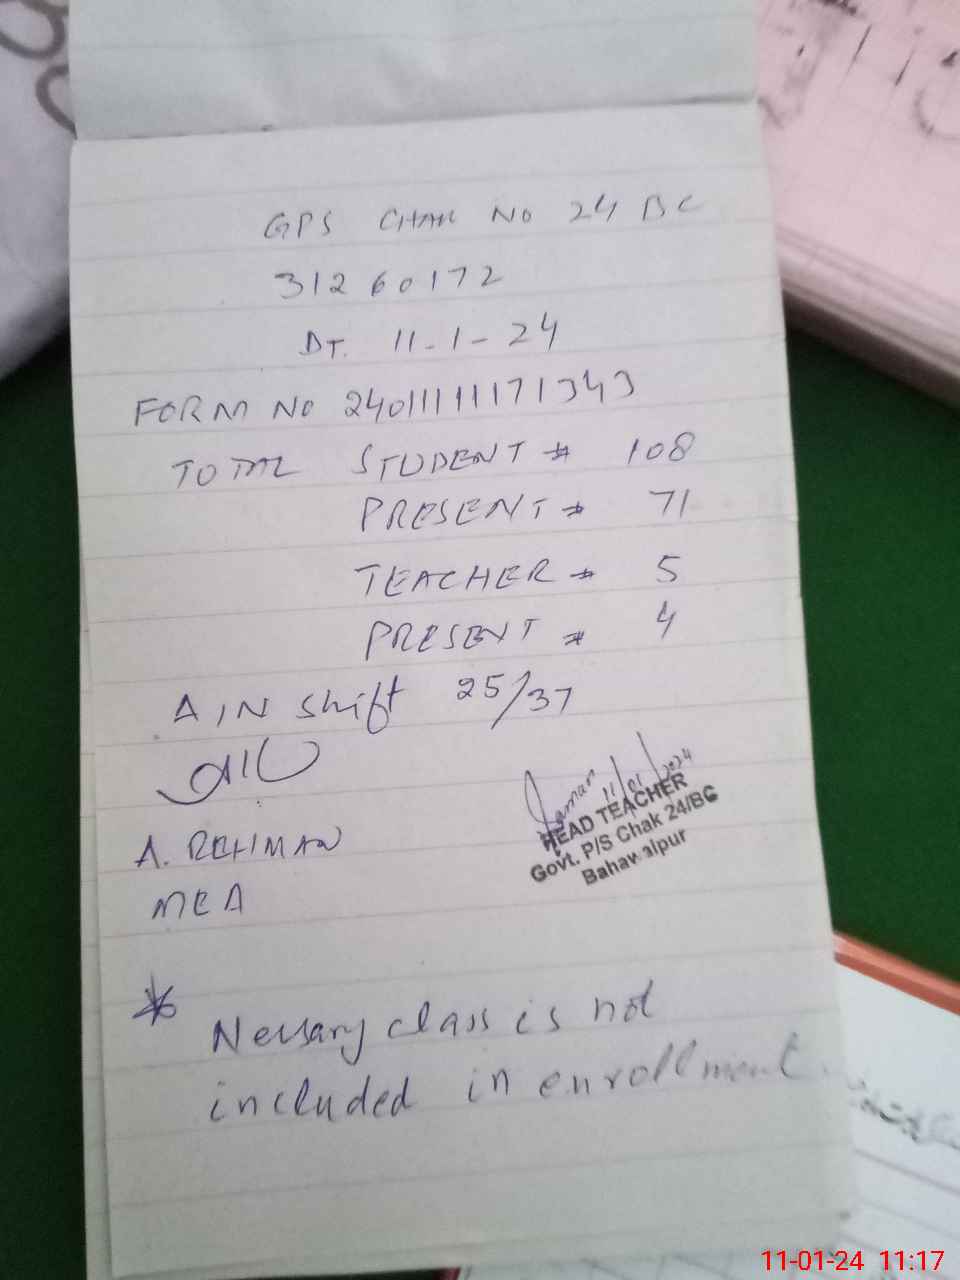 GPS CHAK NO 24 BC
31260172
DT. 11-1-24
FORM NO 2401111171343
TOTAL STUDENT → 108
PRESENT → 71
TEACHER → 5
PRESENT → 4
A/N shift 25/37
A. REHMAN
MEA
11/01/2024
HEAD TEACHER
Govt. P/S Chak 24/BC
Bahawalpur
* Nersary class is not
included in enrollment
11-01-24 11:17